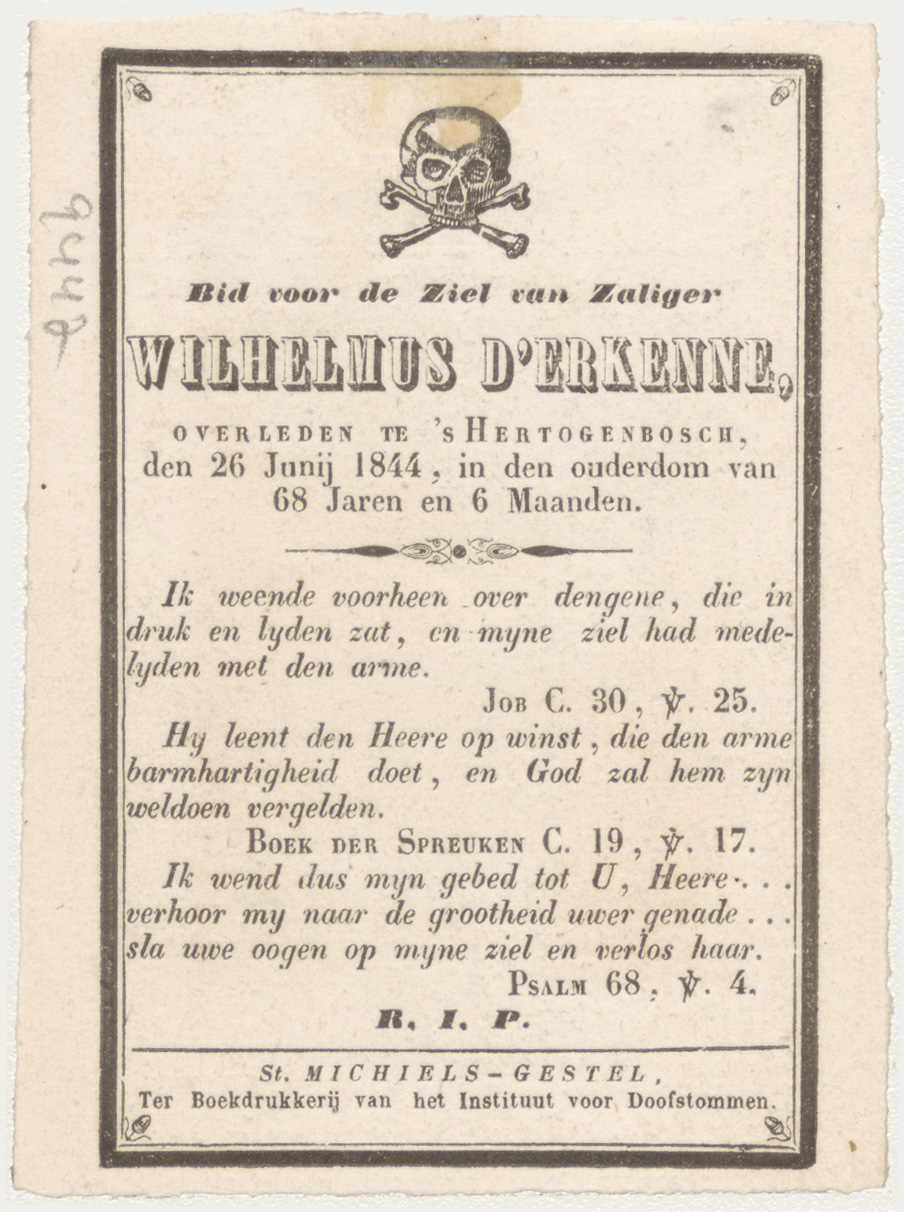 Bid voor de Ziel van Zaliger
WILHELMUS D'ERKENNE,
OVERLEDEN TE 's HERTOGENBOSCH,
den 26 Junij 1844, in den ouderdom van
68 Jaren en 6 Maanden.
Ik weende voorheen over dengene, die in
druk en lyden zat, en myne ziel had mede-
lyden met den arme.
JOB C. 30, ℣. 25.
Hy leent den Heere op winst, die den arme
barmhartigheid doet, en God zal hem zyn
weldoen vergelden.
BOEK DER SPREUKEN C. 19, ℣. 17.
Ik wend dus myn gebed tot U, Heere...
verhoor my naar de grootheid uwer genade...
sla uwe oogen op myne ziel en verlos haar.
PSALM 68, ℣. 4.
R. I. P.
St. MICHIELS-GESTEL,
Ter Boekdrukkerij van het Instituut voor Doofstommen.